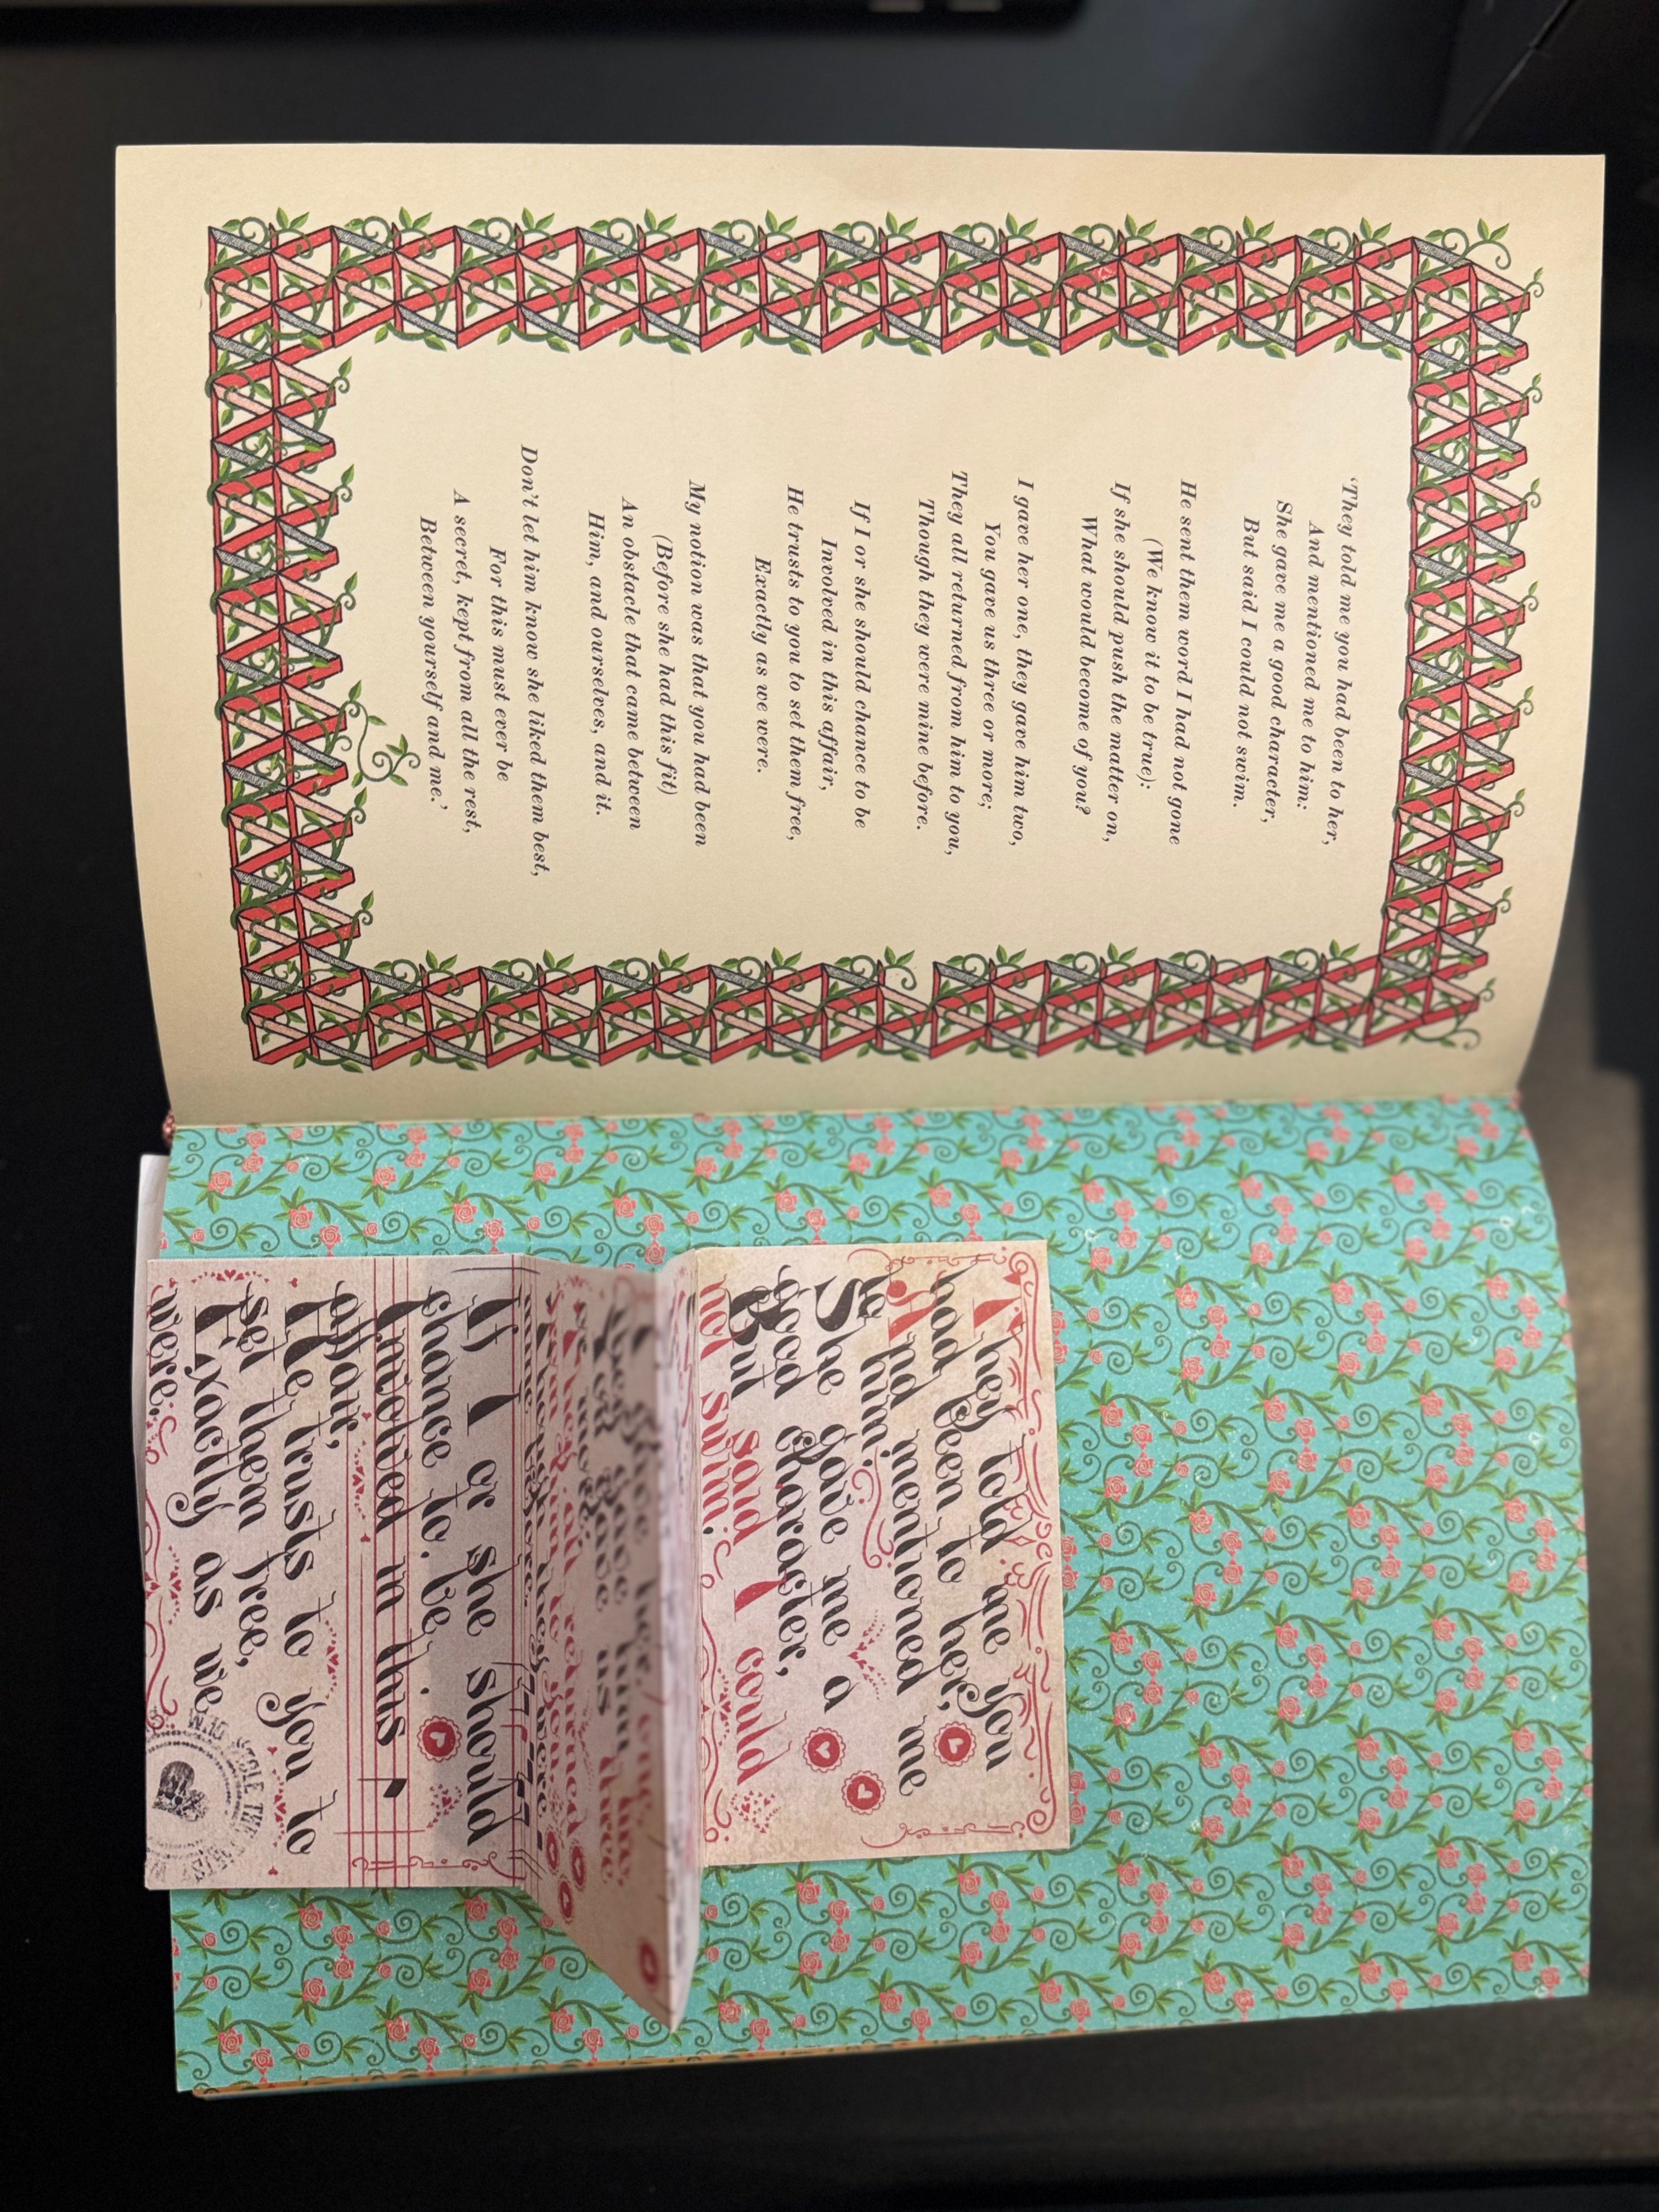 ‘They told me you had been to her,
And mentioned me to him:
She gave me a good character,
But said I could not swim.
He sent them word I had not gone
(We know it to be true):
If she should push the matter on,
What would become of you?
I gave her one, they gave him two,
You gave us three or more;
They all returned from him to you,
Though they were mine before.
If I or she should chance to be
Involved in this affair,
He trusts to you to set them free,
Exactly as we were.
My notion was that you had been
(Before she had this fit)
An obstacle that came between
Him, and ourselves, and it.
Don’t let him know she liked them best,
For this must ever be
A secret, kept from all the rest,
Between yourself and me.’
They told me you
had been to her,
And mentioned me
to him:
She gave me a
good character,
But said I could
not swim.
I gave her one,
they gave him two,
You gave us three
or more;
They all returned
from him to you,
Though they were
mine before.
If I or she should
chance to be
Involved in this
affair,
He trusts to you to
set them free,
Exactly as we
were.
WHO STOLE THE